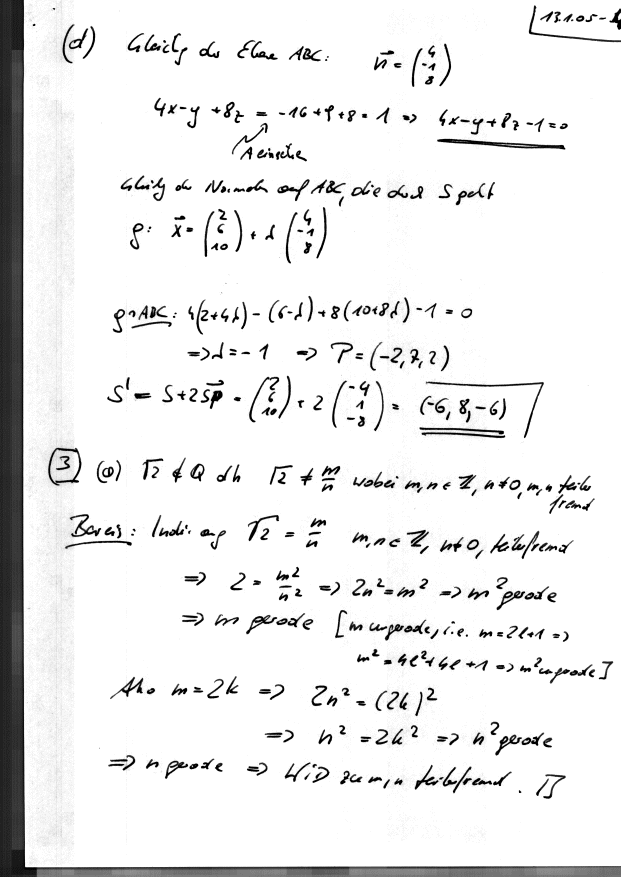 13.1.05-4
(d) Gleichg der Ebene ABC: n⃗ = (4 -1 8)
4x-y+8z = -16+9+8 = 1 ⇒ 4x-y+8z-1=0
A einsetzen
Gleichg der Normalen auf ABC, die durch S geht
g: x⃗ = (2 6 10) + λ (4 -1 8)
g∩ABC: 4(2+4λ)-(6-λ)+8(10+8λ)-1=0
⇒ λ=-1 ⇒ P=(-2,7,2)
S' = S+2SP⃗ = (2 6 10) + 2 (-4 1 -8) = (-6, 8, -6)
3 (a) √2 ∉ Q dh √2 ≠ m/n wobei m,n ∈ ℤ, n≠0, m,n teiler
fremd
Beweis: Indir. ang √2 = m/n m,n ∈ ℤ, n≠0, teilerfremd
⇒ 2 = m²/n² ⇒ 2n²=m² ⇒ m² gerade
⇒ m gerade [m ungerade, i.e. m=2l+1 ⇒
m²=4l²+4l+1 ⇒ m² ungerade]
Also m=2k ⇒ 2n² = (2k)²
⇒ n² = 2k² ⇒ n² gerade
⇒ n gerade ⇒ WID zu m,n teilerfremd. □